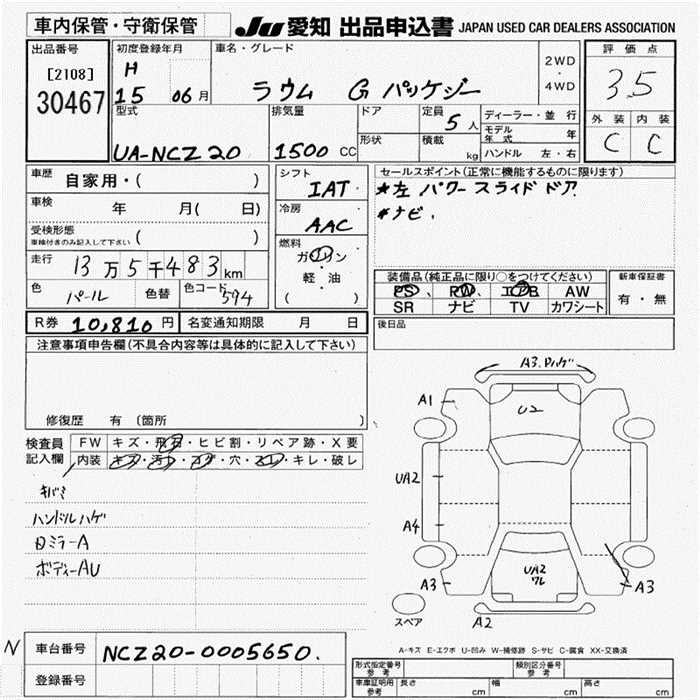 車内保管・守衛保管 JU 愛知 出品申込書 JAPAN USED CAR DEALERS ASSOCIATION
出品番号 初度登録年月 車名・グレード 2WD ・ 4WD 評価点
[2108] H 3.5
30467 15 06月 ラウム G パッケジー
型式 排気量 ドア 定員 5人 ディーラー・並行 外装 内装
形状 積載 kg モデル年式 年 C C
UA-NCZ20 1500 CC ハンドル 左・右
車歴 自家用・( ) シフト IAT セールスポイント(正常に機能するものに限ります)
車検 年 月( 日) 冷房 AAC *左 パワースライドドア
受検形態 ( ) *ナビ.
車検付きのみ記入して下さい
燃料 ガソリン・軽・油 ( )
走行 13万5千483km
色 パール 色替 色コード 594
装備品(純正品に限り○をつけてください) 新車保証書
PS、PW、エアB AW 有・無
SR ナビ TV カワシート
R券 10,810円 名変通知期限 月 日 後日品
注意事項申告欄(不具合内容等は具体的に記入して下さい)
修復歴 有 (箇所 )
検査員記入欄 FW キズ・飛石・ヒビ割・リペア跡・X要
内装 キズ・汚れ・コゲ・穴・スレ・キレ・破レ
キバミ
ハンドルハゲ
Dミラー A
ボディー AU
A3.ハゲ
A1
U2
UA2
A4
A3
UA2
ワレ
A3
A2
スペア
A-キズ E-エクボ U-凹み W-補修跡 S-サビ C-腐食 XX-交換済
N 車台番号 NCZ20-0005650.
登録番号
形式指定番号 参考 類別区分番号 参考
車庫証明用 参考 長さ cm 幅 cm 高さ cm